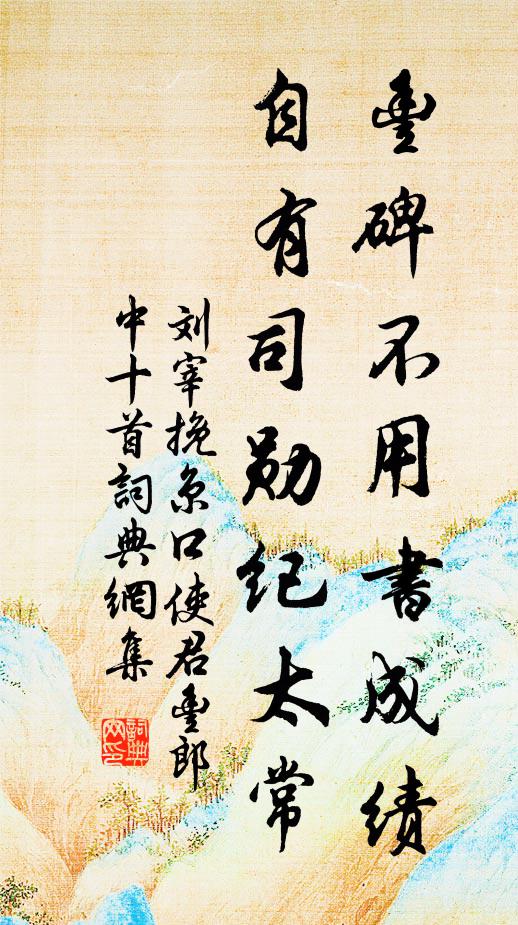 豊碑不用書成绩
自有司勋纪太常
刘宰挽京口使君豊郎
中十首詞典網集
詞典
网印